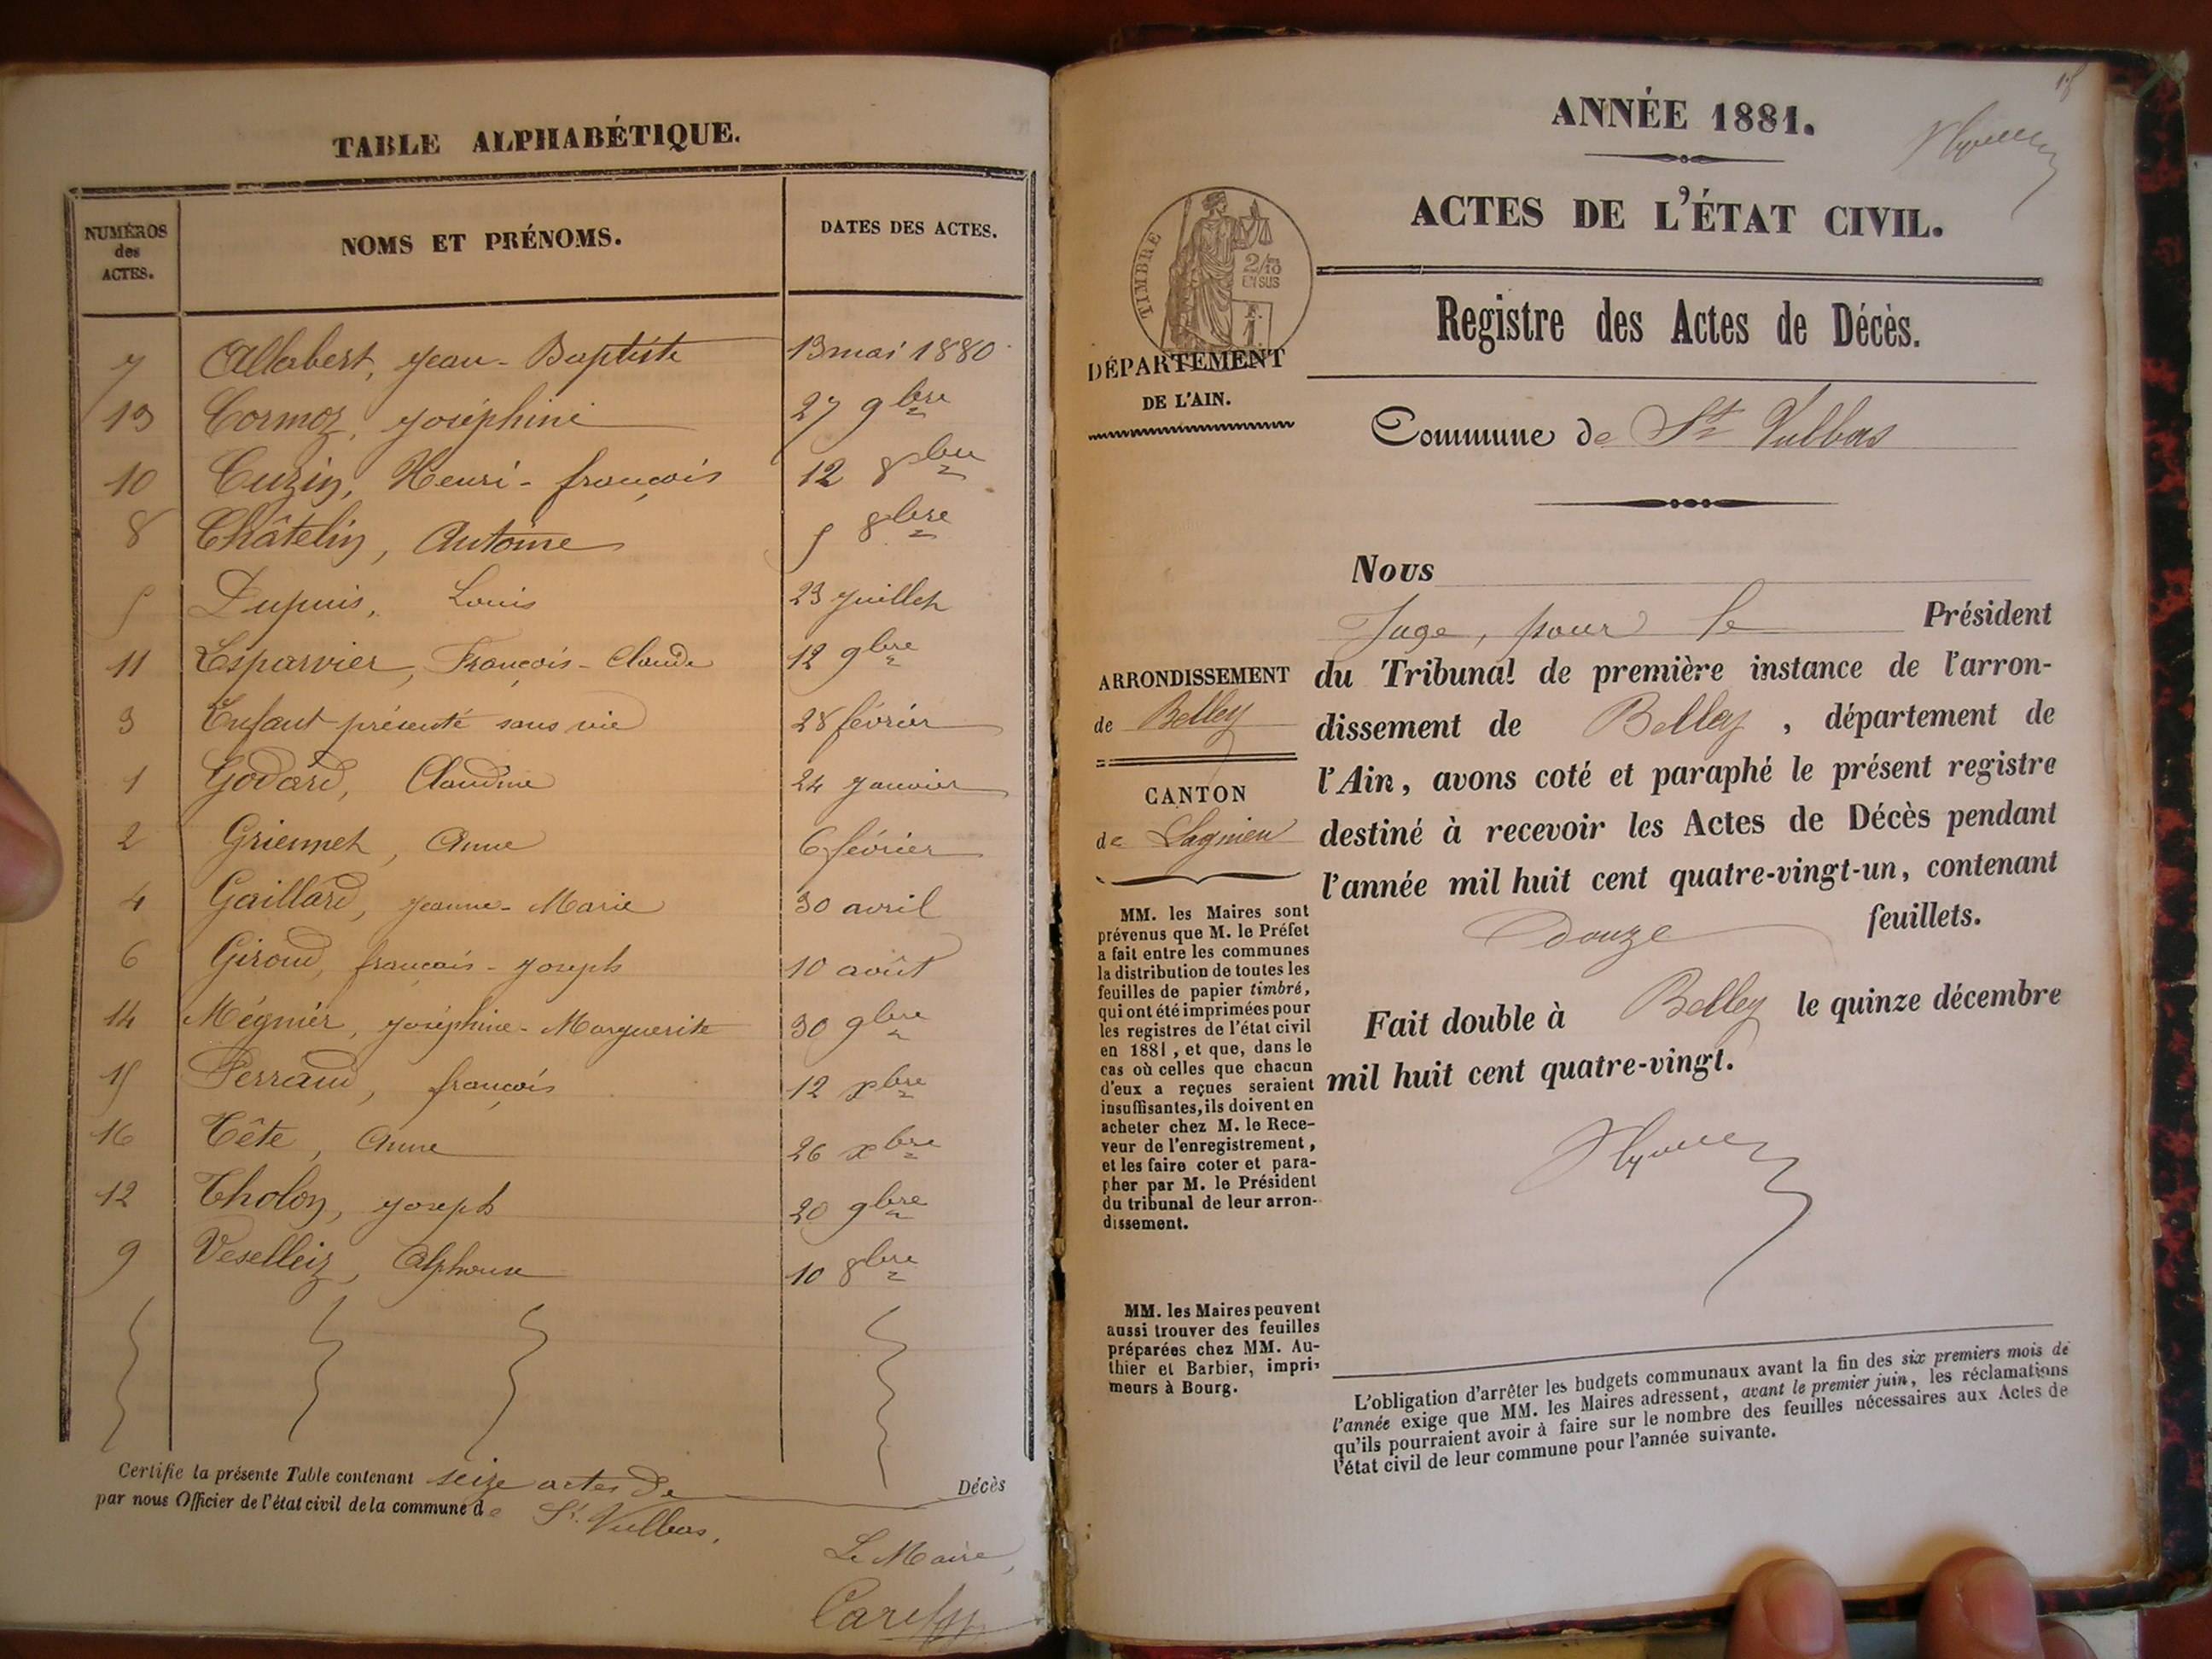 TABLE ALPHABÉTIQUE.
NUMÉROS des ACTES.
NOMS ET PRÉNOMS.
DATES DES ACTES.
7 Allabert, Jean-Baptiste 13 mai 1880
13 Cormoz, Joséphine 27 9bre
10 Cuzin, Henri-françois 12 8bre
8 Châtelin, Antoine 5 8bre
5 Dupuis, Louis 23 Juillet
11 Esparvier, François-Claude 12 9bre
3 Enfant présenté sans vie 28 février
1 Godard, Claudine 24 Janvier
2 Griennet, Anne 6 février
4 Gaillard, Jeanne-Marie 30 avril
6 Giroud, françois-Joseph 10 août
14 Mégnier, Joséphine-Marguerite 30 9bre
15 Perraud, françois 12 xbre
16 Tête, Anne 26 xbre
12 Tholon, Joseph 20 9bre
9 Veselleiz, Alphonse 10 8bre
Certifie la présente Table contenant seize actes de Décès
par nous Officier de l'état civil de la commune de St. Vulbas,
Le Maire,
ANNÉE 1881.
ACTES DE L'ÉTAT CIVIL.
TIMBRE
2/10
EN SUS
Registre des Actes de Décès.
DÉPARTEMENT
DE L'AIN.
Commune de St Vulbas
Nous
Juge, pour le Président
du Tribunal de première instance de l'arron-
dissement de Belley, département de
l'Ain, avons coté et paraphé le présent registre
destiné à recevoir les Actes de Décès pendant
l'année mil huit cent quatre-vingt-un, contenant
douze feuillets.
Fait double à Belley le quinze décembre
mil huit cent quatre-vingt.
ARRONDISSEMENT
de Belley
CANTON
de Lagnieu
MM. les Maires sont
prévenus que M. le Préfet
a fait entre les communes
la distribution de toutes les
feuilles de papier timbré,
qui ont été imprimées pour
les registres de l'état civil
en 1881, et que, dans le
cas où celles que chacun
d'eux a reçues seraient
insuffisantes, ils doivent en
acheter chez M. le Rece-
veur de l'enregistrement,
et les faire coter et para-
pher par M. le Président
du tribunal de leur arron-
dissement.
MM. les Maires peuvent
aussi trouver des feuilles
préparées chez MM. Au-
thier et Barbier, impri-
meurs à Bourg.
L'obligation d'arrêter les budgets communaux avant la fin des six premiers mois de
l'année exige que MM. les Maires adressent, avant le premier juin, les réclamations
qu'ils pourraient avoir à faire sur le nombre des feuilles nécessaires aux Actes de
l'état civil de leur commune pour l'année suivante.